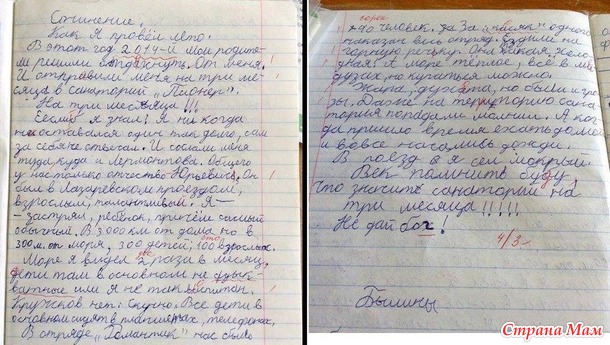 Сочинение.
Как я провёл лето.
В этот год 2014-й мои родите-
ли решили отдохнуть. От меня.
И отправили меня на три ме-
сяца в санаторий „Пионер".
На три месяца!!!
Если б я знал! Я ни когда
не оставался один так долго, сам
за себя не отвечал. И сослали меня
туда, куда и Лермонтова. Общего
у нас только отчество Юрьевич. Он
был в Лазаревском проездом,
взрослый, талантливый. Я –
застрял, ребёнок, причём самый
обычный. В 3000 км от дома но в
300 м. от моря, 300 детей, 100 взрослых.
Море я видел 2 раза в месяц,
дети там в основном не
или я не так воспитан.
Кружков нет. Скучно. Все дети в
основном сидят в планшетах, телефонах.
В отряде „Романтик" нас было
сорок
40 человек. За „косяк" одного
наказан весь отряд. Ездили на
горную речку. Она такая холо-
дная! А море тёплое, всё в ме-
дузах, но купаться можно.
Жара, духота, но были и гро-
зы. Даже на территорию сана-
тория попадали молнии. А ког
да пришло время ехать домой
и вовсе начались дожди.
В поезд я сел мокрый.
Век помнить буду,
что значить санаторий на
три месяца!!!!!
Не дай бох!
4/3-
Былины
Страна Мам